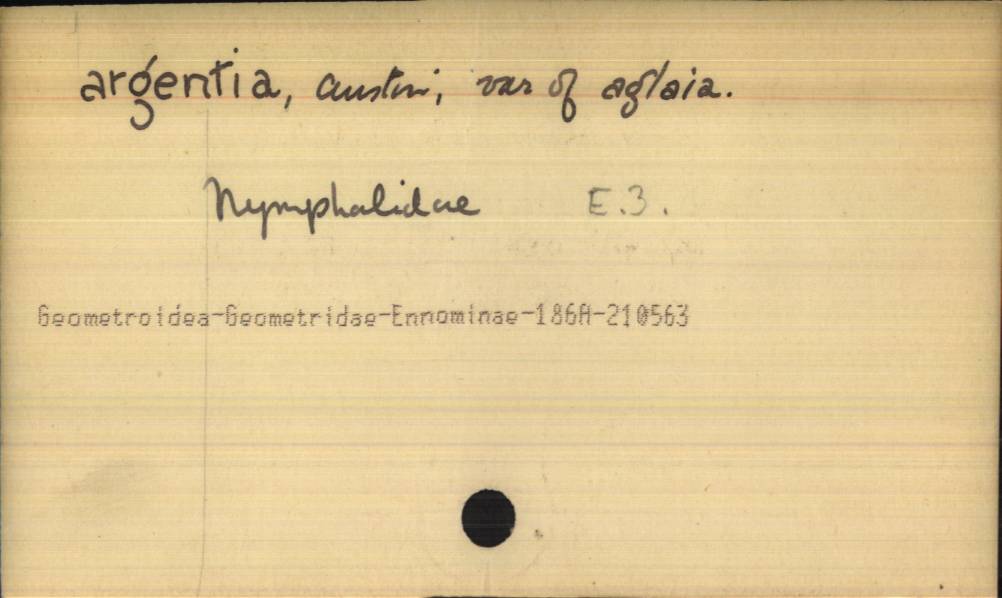 argentia, austin; var of aglaia.
Nymphalidae E.3.
Geometroidea-Geometridae-Ennominae-186A-210563